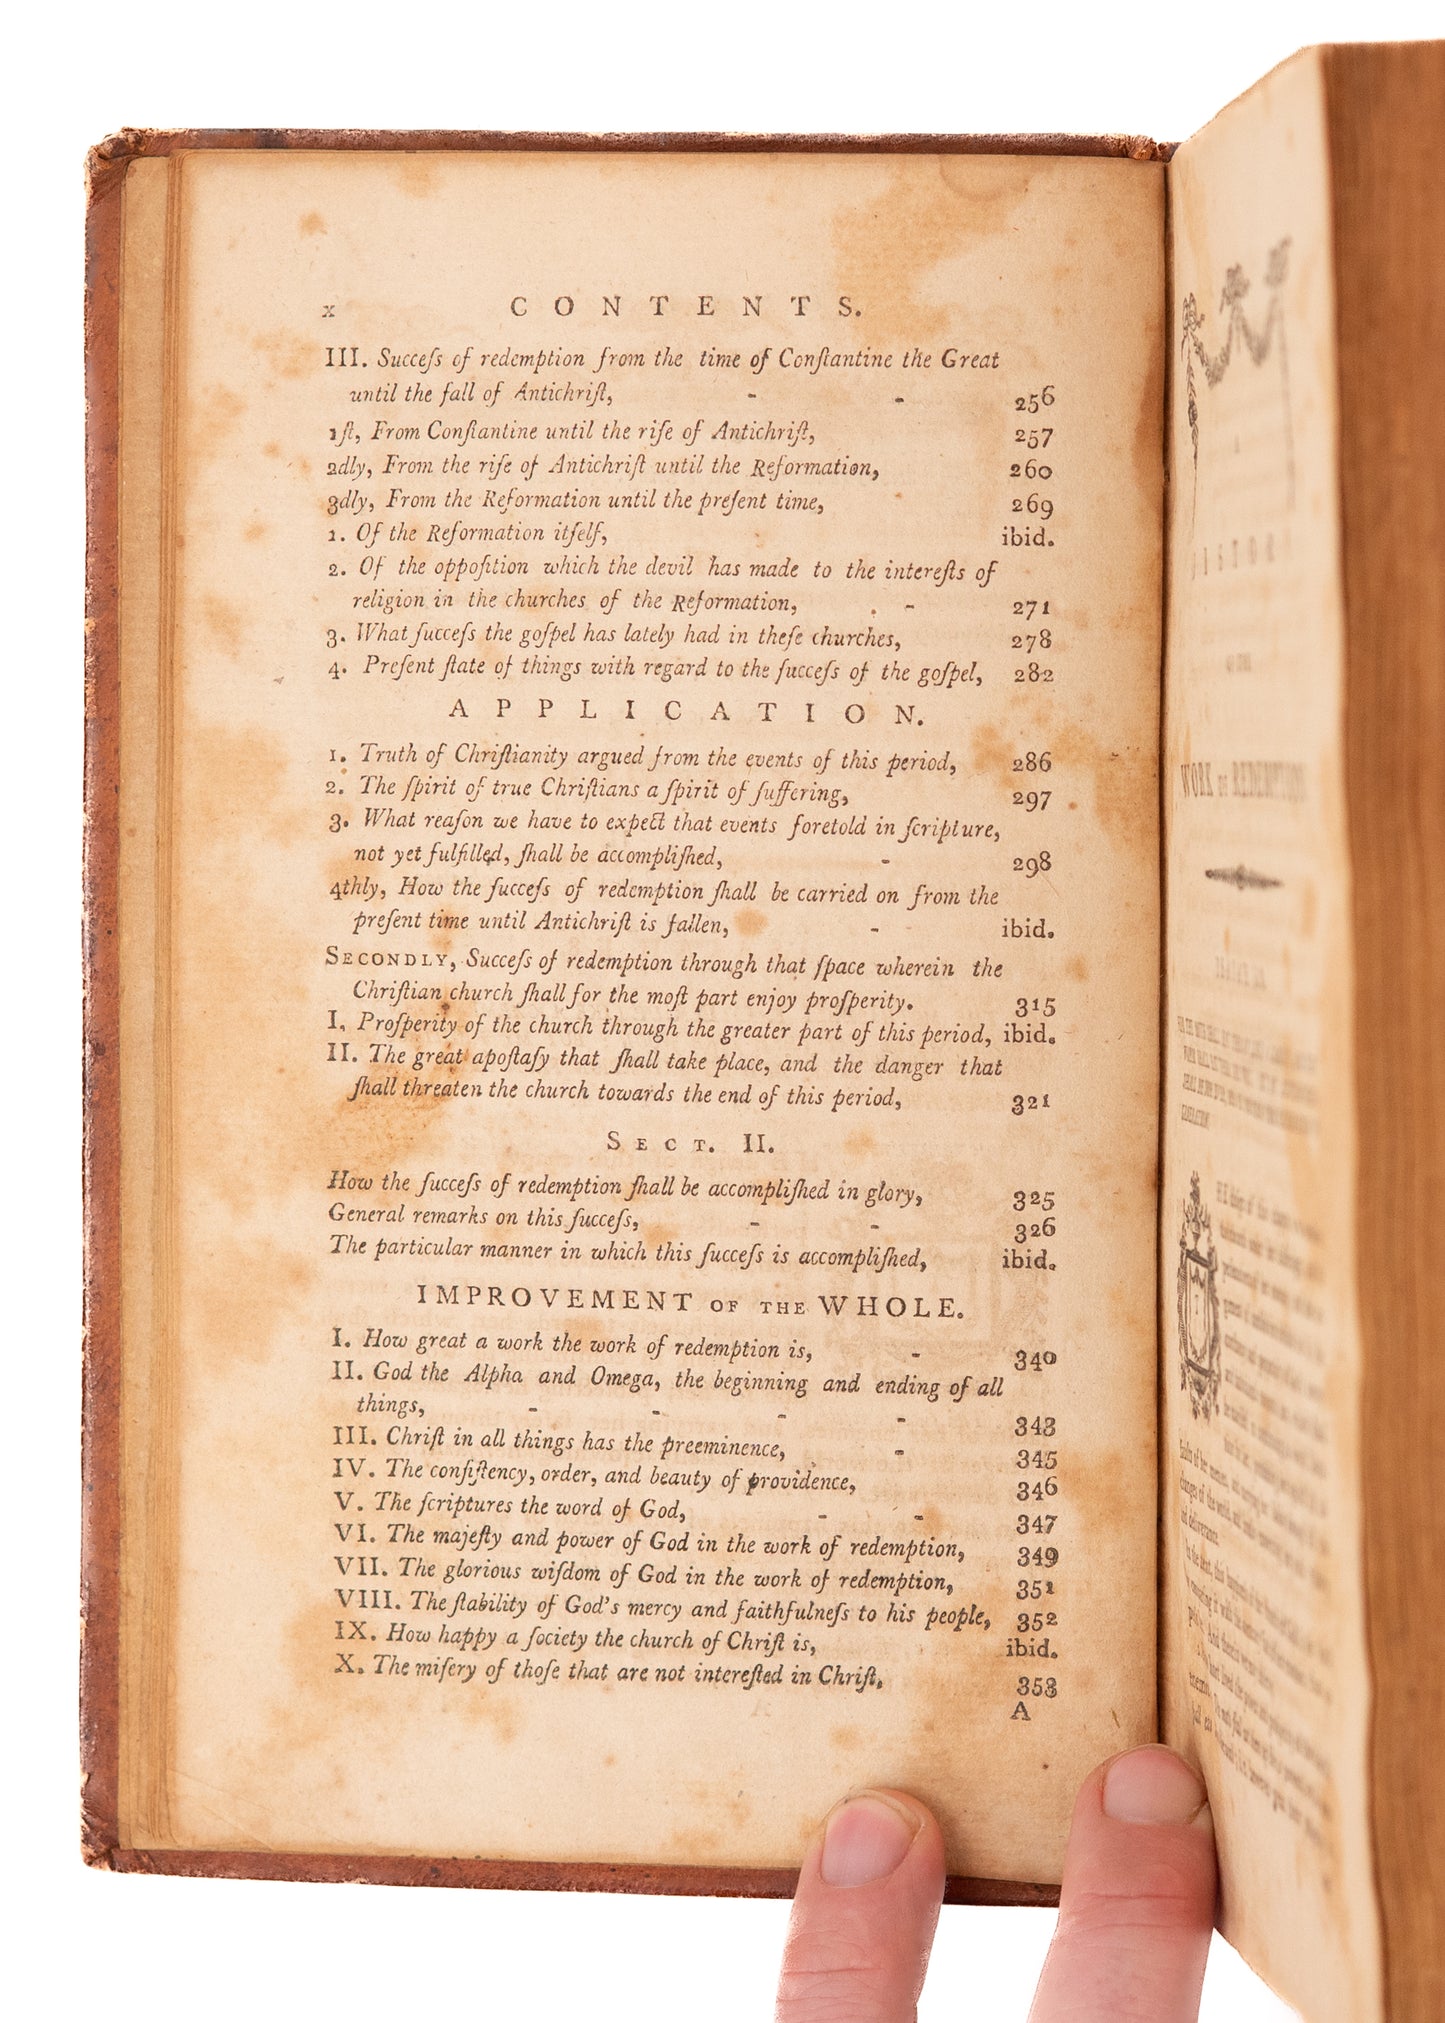 x CONTENTS.
III. Succeſs of redemption from the time of Conſtantine the Great
until the fall of Antichriſt, - - 256
1ſt, From Conſtantine until the riſe of Antichriſt, 257
2dly, From the riſe of Antichriſt until the Reformation, 260
3dly, From the Reformation until the preſent time, 269
1. Of the Reformation itſelf, ibid.
2. Of the oppoſition which the devil has made to the intereſts of
religion in the churches of the Reformation, - 271
3. What ſucceſs the goſpel has lately had in theſe churches, 278
4. Preſent ſtate of things with regard to the ſucceſs of the goſpel, 282
APPLICATION.
1. Truth of Chriſtianity argued from the events of this period, 286
2. The ſpirit of true Chriſtians a ſpirit of ſuffering, 297
3. What reaſon we have to expect that events foretold in ſcripture,
not yet fulfilled, ſhall be accompliſhed, - 298
4thly, How the ſucceſs of redemption ſhall be carried on from the
preſent time until Antichriſt is fallen, - ibid.
SECONDLY, Succeſs of redemption through that ſpace wherein the
Chriſtian church ſhall for the moſt part enjoy proſperity. 315
I. Proſperity of the church through the greater part of this period, ibid.
II. The great apoſtaſy that ſhall take place, and the danger that
ſhall threaten the church towards the end of this period, 321
SECT. II.
How the ſucceſs of redemption ſhall be accompliſhed in glory, 325
General remarks on this ſucceſs, - - 326
The particular manner in which this ſucceſs is accompliſhed, ibid.
IMPROVEMENT OF THE WHOLE.
I. How great a work the work of redemption is, - 340
II. God the Alpha and Omega, the beginning and ending of all
things, - - - - 343
III. Chriſt in all things has the preeminence, - 345
IV. The conſiſtency, order, and beauty of providence, 346
V. The ſcriptures the word of God, - - 347
VI. The majeſty and power of God in the work of redemption, 349
VII. The glorious wiſdom of God in the work of redemption, 351
VIII. The ſtability of God's mercy and faithfulneſs to his people, 352
IX. How happy a ſociety the church of Chriſt is, ibid.
X. The miſery of thoſe that are not intereſted in Chriſt, 353
A
WORK OF